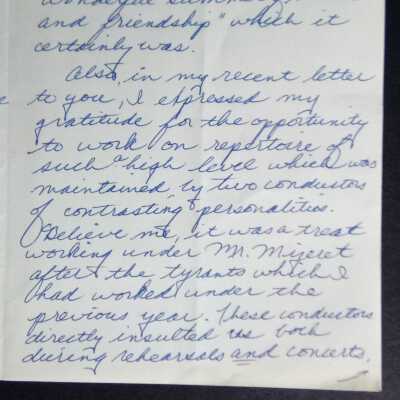 wonderful summer
and friendship" which it
certainly was.
Also, in my recent letter
to you, I expressed my
gratitude for the opportunity
to work on repertoire of
such a high level which was
maintained by two conductors
of contrasting personalities.
Believe me, it was a treat
working under Mr. Mizeret
after the tyrants which I
had worked under the
previous year. These conductors
directly insulted us both
during rehearsals and concerts.